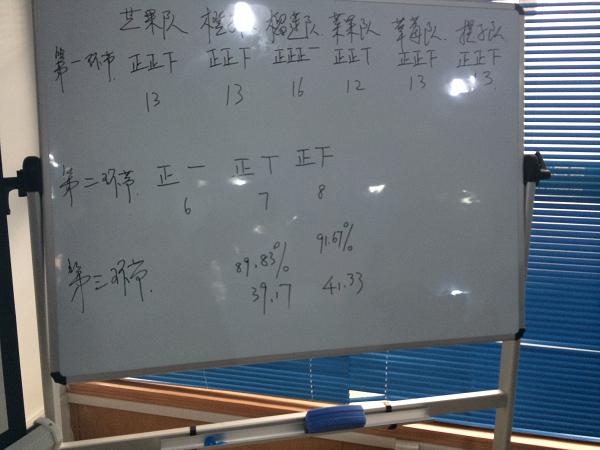 芒果队 橙子队 榴莲队 苹果队 草莓队 提子队
第一环节 正正下 正正下 正正正一 正正丅 正正下 正正下
13 13 16 12 13 13
第二环节 正一 正丅 正下
6 7 8
第三环节 89.83% 91.67%
39.17 41.33